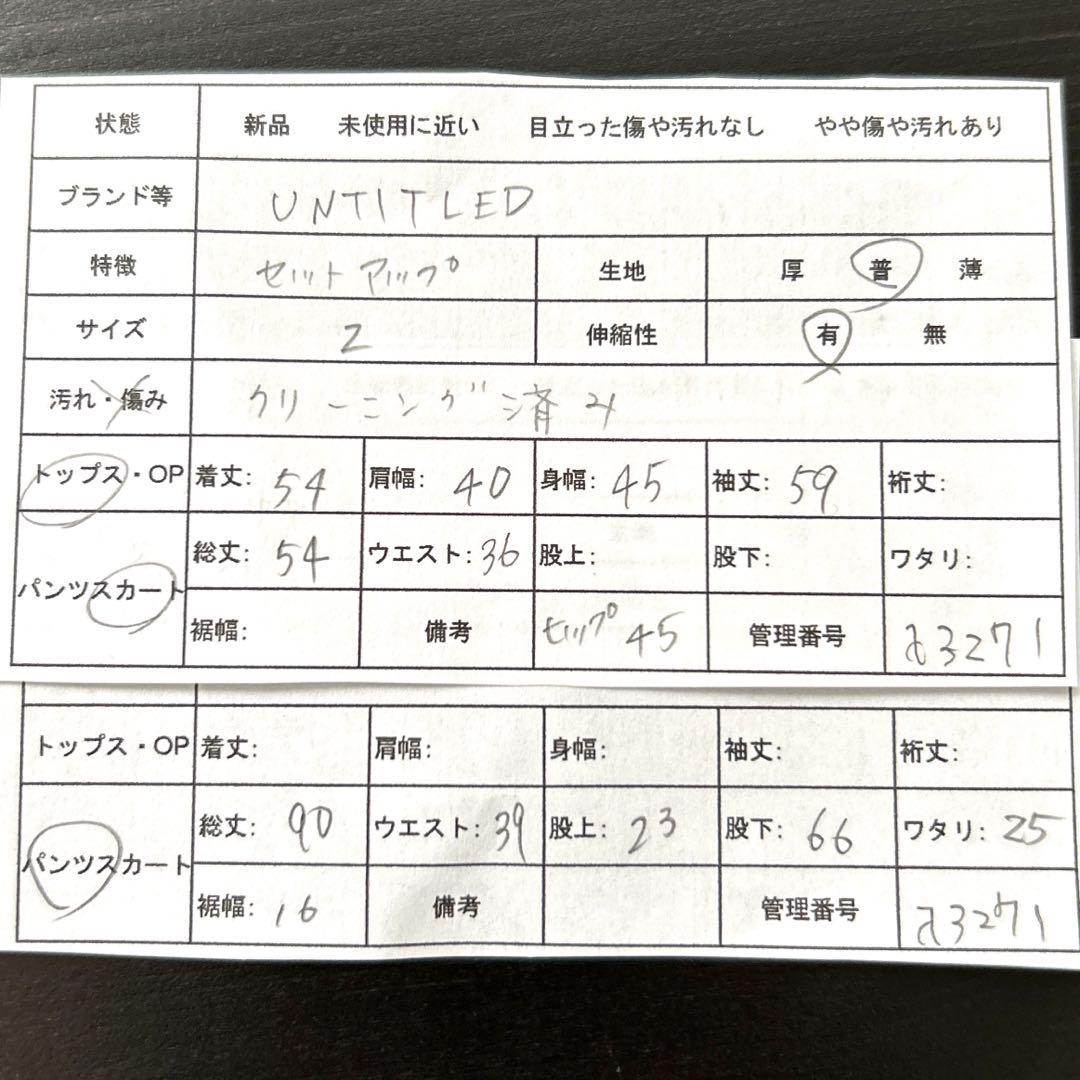 状態 新品 未使用に近い 目立った傷や汚れなし やや傷や汚れあり
ブランド等 UNTITLED
特徴 セットアップ 生地 厚 普 薄
サイズ 2 伸縮性 有 無
汚れ・傷み クリーニング済み
トップス・OP 着丈: 54 肩幅: 40 身幅: 45 袖丈: 59 裄丈:
パンツスカート 総丈: 54 ウエスト: 36 股上: 股下: ワタリ:
裾幅: 備考 ヒップ45 管理番号 3271
トップス・OP 着丈: 肩幅: 身幅: 袖丈: 裄丈:
パンツスカート 総丈: 90 ウエスト: 39 股上: 23 股下: 66 ワタリ: 25
裾幅: 16 備考 管理番号 3271